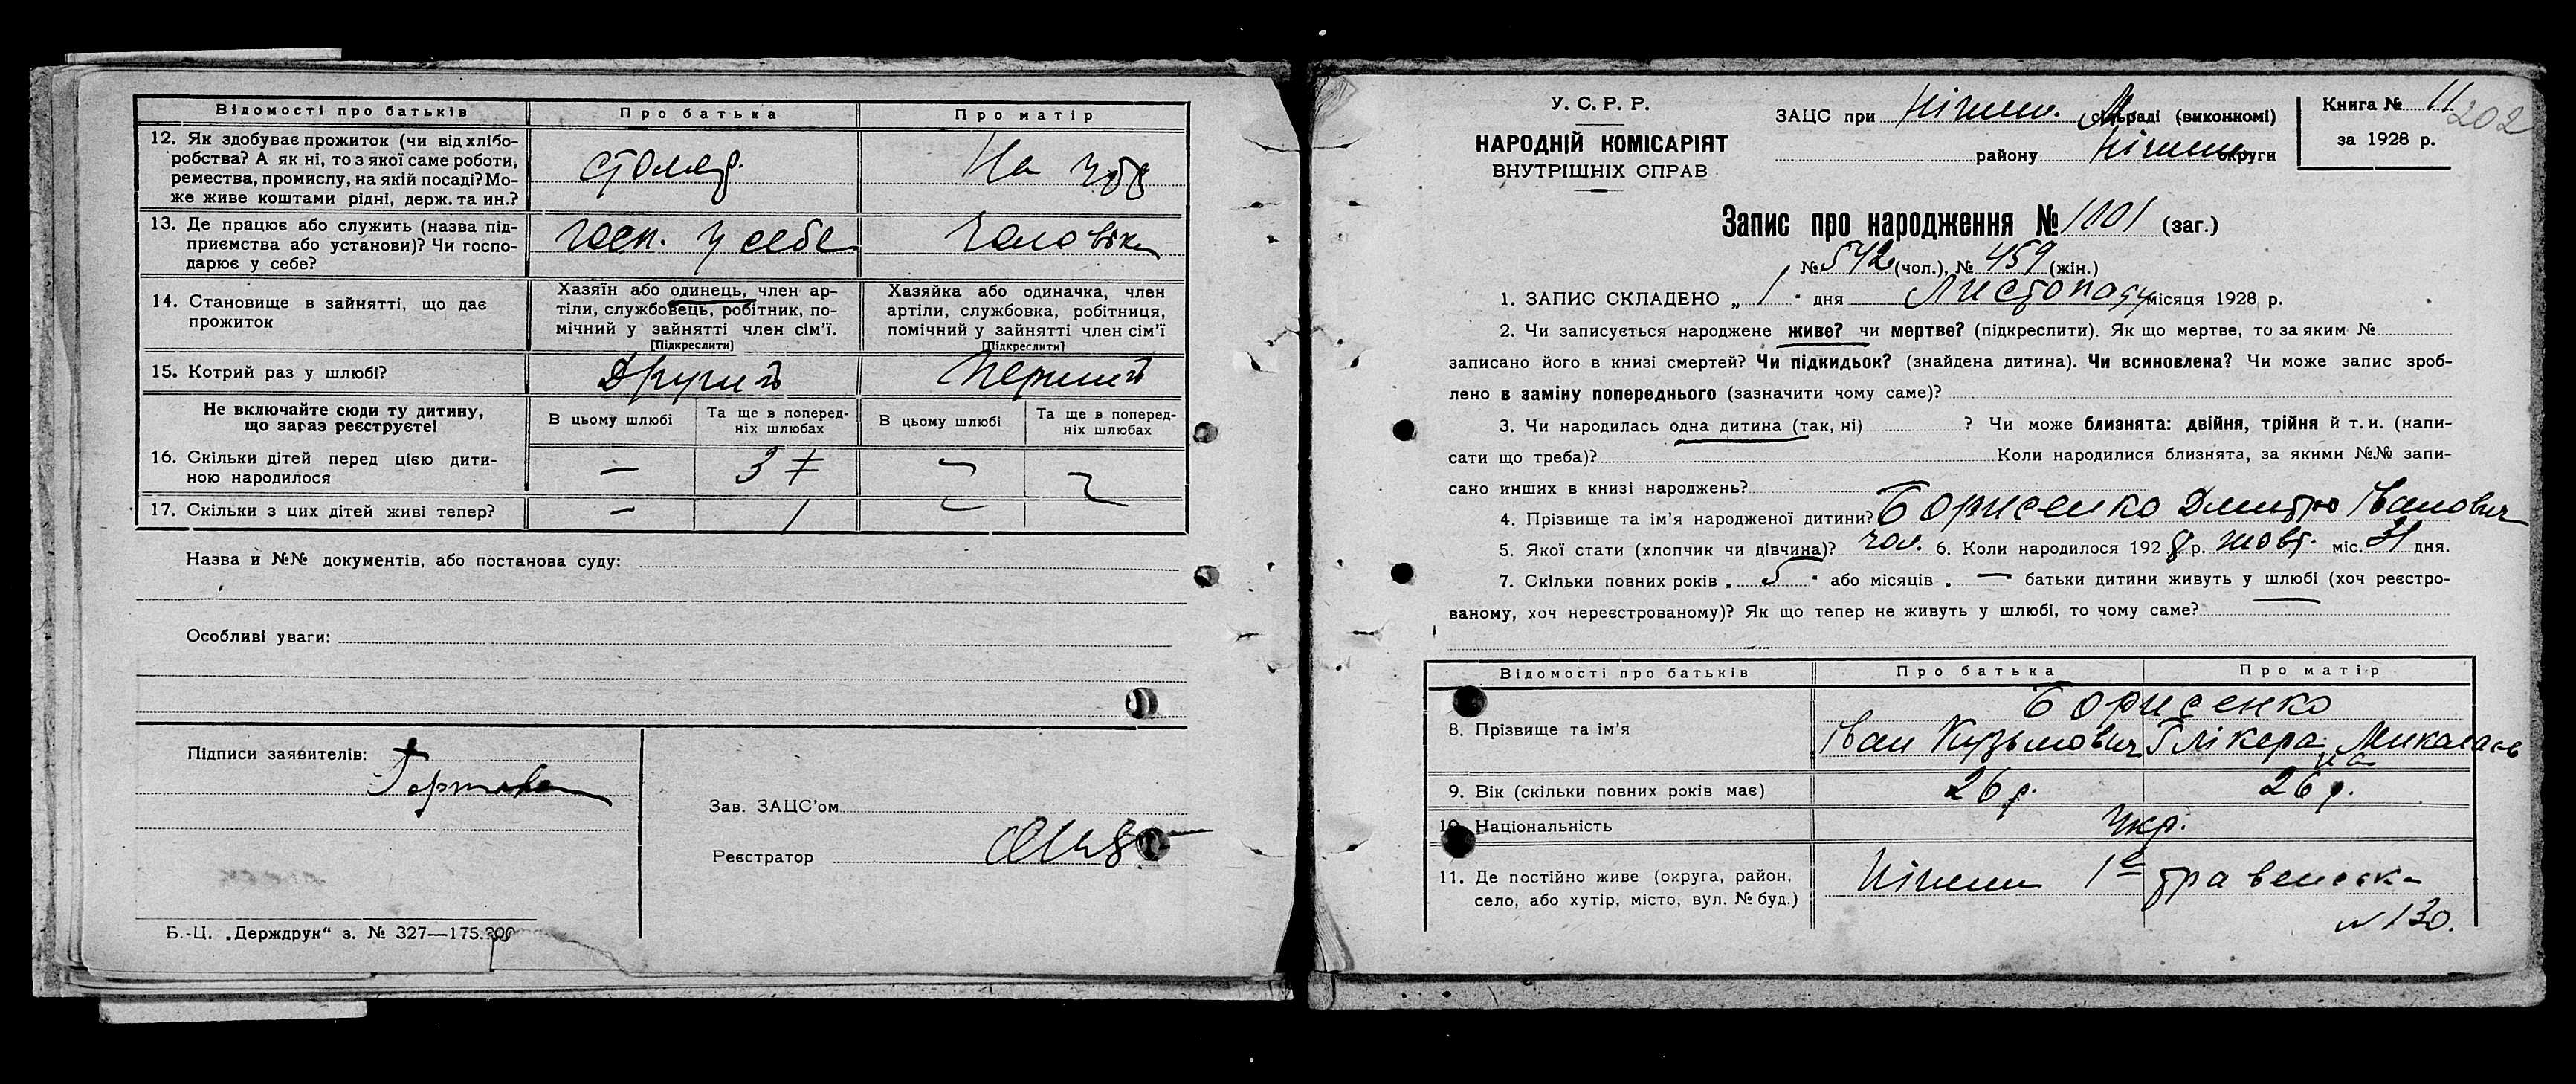 Відомості про батьків Про батька Про матір
12. Як здобуває прожиток (чи від хлібо-
робства? А як ні, то з якої саме роботи,
ремества, промислу, на якій посаді? Мо-
же живе коштами рідні, держ. та ин.?
столяр. На утр
13. Де працює або служить (назва під-
приємства або установи)? Чи госпо-
дарює у себе?
госп. у себе чоловіка
14. Становище в зайнятті, що дає
прожиток
Хазяїн або одинець, член ар-
тіли, службовець, робітник, по-
мічний у зайнятті член сім'ї.
[Підкреслити]
Хазяйка або одиначка, член
артіли, службовка, робітниця,
помічний у зайнятті член сім'ї
[Підкреслити]
15. Котрий раз у шлюбі? Другий Перший
Не включайте сюди ту дитину,
що зараз реєструєте!
В цьому шлюбі Та ще в поперед-
ніх шлюбах В цьому шлюбі Та ще в поперед-
ніх шлюбах
16. Скільки дітей перед цією дити-
ною народилося — 3
17. Скільки з цих дітей живі тепер? — 1
Назва й №№ документів, або постанова суду:
Особливі уваги:
Підписи заявителів:
Зав. ЗАЦС'ом
Реєстратор
Б.-Ц. „Держдрук“ з. № 327—175.200
У. С. Р. Р.
НАРОДНІЙ КОМІСАРІЯТ
ВНУТРІШНІХ СПРАВ
ЗАЦС при Ніжин. М. сільраді (виконкомі)
району Ніжин округи
Книга № 11
202
за 1928 р.
Запис про народження № 1101 (заг.)
№ 542 (чол.), № 459 (жін.)
1. ЗАПИС СКЛАДЕНО „ 1 " дня Листопаду місяця 1928 р.
2. Чи записується народжене живе? чи мертве? (підкреслити). Як що мертве, то за яким №
записано його в книзі смертей? Чи підкидьок? (знайдена дитина). Чи всиновлена? Чи може запис зроб-
лено в заміну попереднього (зазначити чому саме)?
3. Чи народилась одна дитина (так, ні) ? Чи може близнята: двійня, трійня й т. и. (напи-
сати що треба)? Коли народилися близнята, за якими №№ запи-
сано инших в книзі народжень?
4. Прізвище та ім'я народженої дитини? Борисенко Дмитро Іванович
5. Якої стати (хлопчик чи дівчина)? чол. 6. Коли народилося 1928 р. жовт. міс. 31 дня.
7. Скільки повних років „ 5 " або місяців „ — батьки дитини живуть у шлюбі (хоч реєстро-
ваному, хоч нереєстрованому)? Як що тепер не живуть у шлюбі, то чому саме?
Відомості про батьків Про батька Про матір
Борисенко
8. Прізвище та ім'я Іван Кузьмович Глікера Микалаєв
на
9. Вік (скільки повних років має) 26 р. 26 р.
10. Національність Укр.
11. Де постійно живе (округа, район,
село, або хутір, місто, вул. № буд.)
Ніжин 1е травенськ
№ 130.